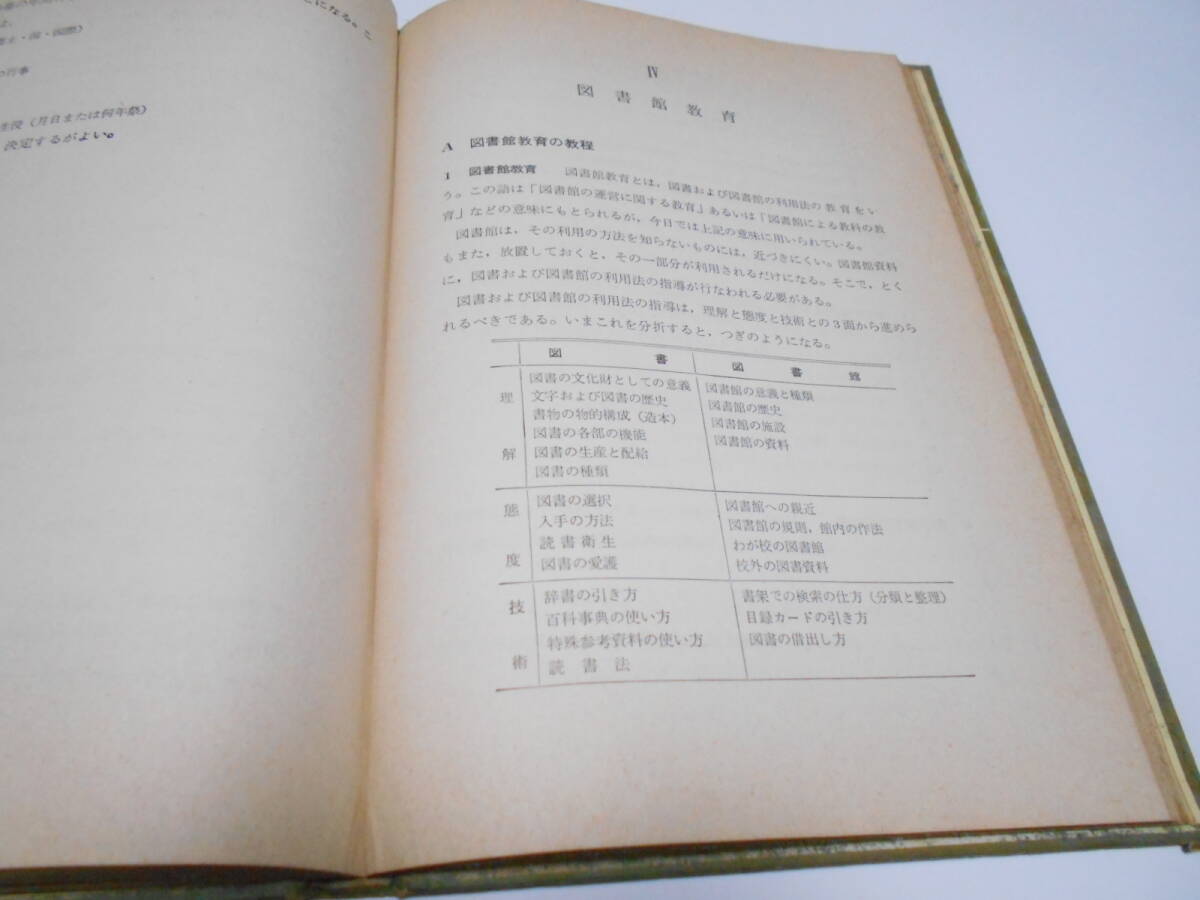 になる。こ
の行事
生没（月日または何年祭）
決定するがよい。
Ⅳ
図書館教育
A 図書館教育の教程
1 図書館教育 図書館教育とは，図書および図書館の利用法の教育をい
う。この語は「図書館の運営に関する教育」あるいは「図書館による教科の教
育」などの意味にもとられるが，今日では上記の意味に用いられている。
図書館は，その利用の方法を知らないものには，近づきにくい。図書館資料
もまた，放置しておくと，その一部分が利用されるだけになる。そこで，とく
に，図書および図書館の利用法の指導が行なわれる必要がある。
図書および図書館の利用法の指導は，理解と態度と技術との3面から進めら
れるべきである。いまこれを分折すると，つぎのようになる。
図書 図書館
理解
図書の文化財としての意義 図書館の意義と種類
文字および図書の歴史 図書館の歴史
書物の物的構成（造本） 図書館の施設
図書の各部の機能 図書館の資料
図書の生産と配給
図書の種類
態度
図書の選択 図書館への親近
入手の方法 図書館の規則，館内の作法
読書衛生 わが校の図書館
図書の愛護 校外の図書資料
技術
辞書の引き方 書架での検索の仕方（分類と整理）
百科事典の使い方 目録カードの引き方
特殊参考資料の使い方 図書の借出し方
読書法